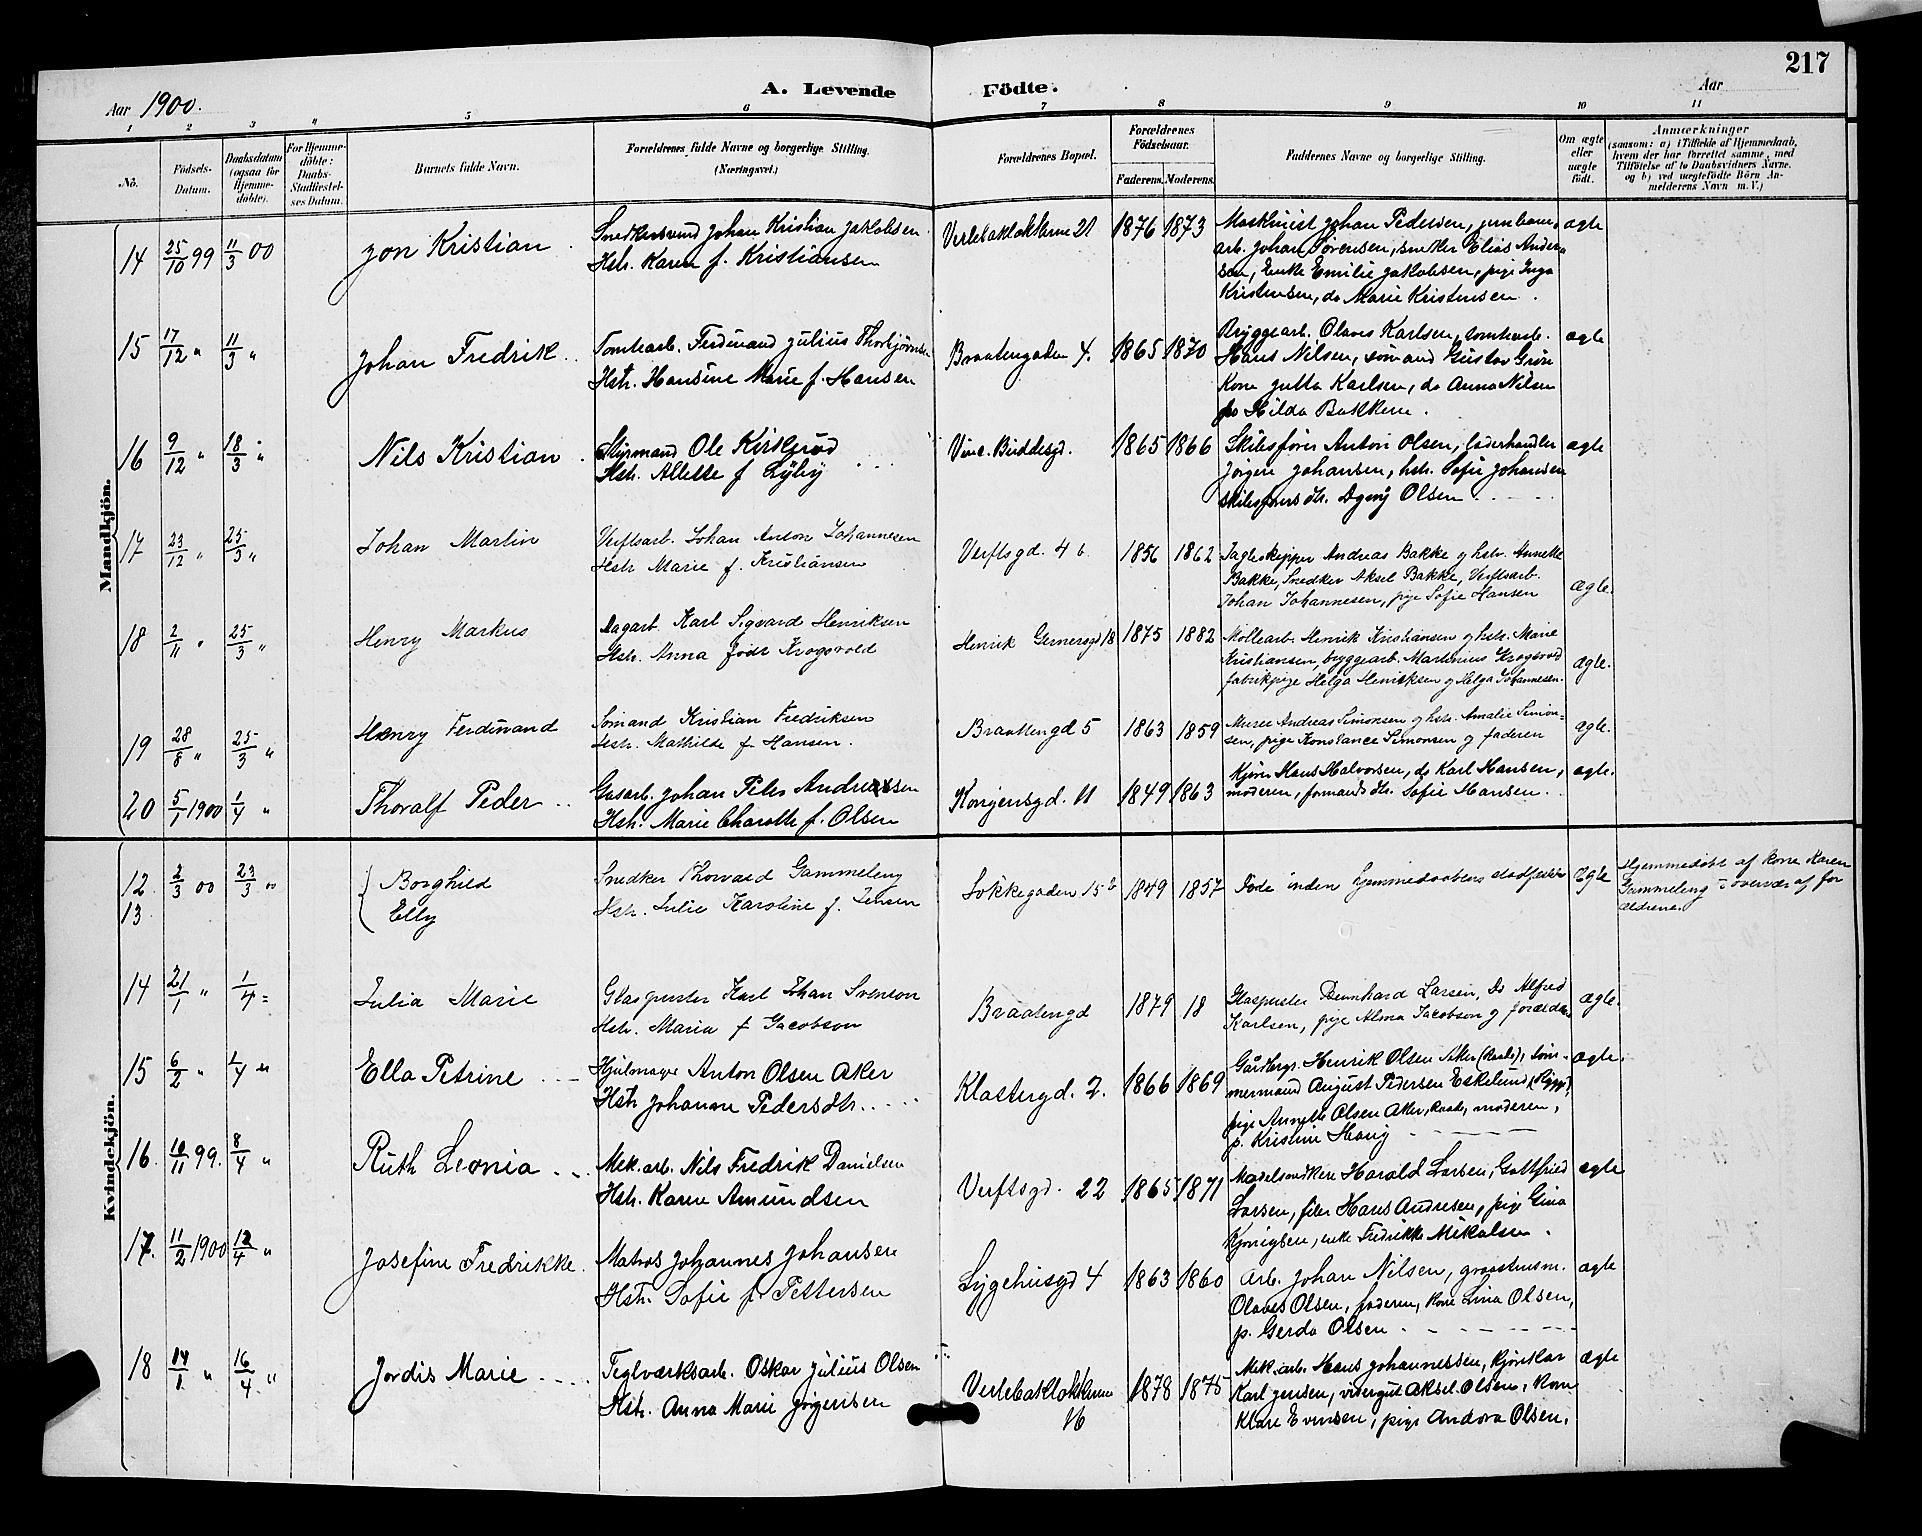 217
Aar 1900.
A. Levende Födte.
Aar
1 2 3 4 5 6 7 8 9 10 11
No.
Födsels-Datum.
Daabsdatum (ogsaa for Hjemmedöbte).
For Hjemmedöbte: Daabs-Stadfæstelses Datum.
Barnets fulde Navn.
Forældrenes fulde Navne og borgerlige Stilling. (Næringsvei.)
Forældrenes Bopæl.
Forældrenes Födselsaar.
Faderens. Moderens.
Faddernes Navne og borgerlige Stilling.
Om ægte eller uægte födt.
Anmærkninger
(saasom: a) i Tilfælde af Hjemmedaab, hvem der har forrettet samme, med Tilföielse af to Daabsvidners Navne, og b) ved uægtefödte Börn Anmelderens Navn m. V.)
Mandkjön.
14 25/10 99 11/3 00 Jon Kristian
Snedkersvend Johan Kristian Jakobsen
Hstr. Karen f. Kristiansen
Verlebakløkkerne 21 1876 1873
Maskinist Johan Pedersen, jernbane-
arb. Johan Sørensen, snekker Elias Ander-
sen, Enke Emilie Jakobsen, pige Inga
Kristensen, do Marie Kristensen.
ægte
15 17/12 " 11/3 " Johan Fredrik
Tomtearb. Ferdinand Julius Thorbjørnsen
Hstr. Hansine Marie f. Hansen
Braatengaden 4. 1865 1870
Bryggearb. Olaves Karlsen, tomtearb.
Hans Nilsen, sømand Gustav Grøn
Kone Jutta Karlsen, do Anna Nilsen
Hilda Bakken.
ægte
16 9/12 " 18/3 " Nils Kristian
Styrmand Ole Kirkerød
Hstr. Allette f Lyby
Vinc. Buddesgd. 1865 1866
Skibsfører Anton Olsen, læderhandler
Jørgen Johansen, hstr. Sofie Johansen
skibsførers dtr. Dagny Olsen
ægte
17 23/12 " 25/3 " Johan Martin
Verftsarb. Johan Anton Johannesen
Hstr Marie f. Kristiansen
Verftsgd. 4 b. 1856 1862
Jagteskipper Andreas Bakke og hstr. Annette
Bakke, Snedker Aksel Bakke, Verftsarb.
Johan Johannesen, pige Sofie Hansen
Ægte.
18 2/11 " 25/3 " Henry Markus
Dagarb. Karl Sigvard Henriksen
Hstr. Anna født Krogsvold
Henrik Gernersgd 18 1875 1882
Møllearb. Henrik Kristiansen og hstr. Marie
Kristiansen, bryggearb. Martinius Krogsvold
fabrikpige Helga Henriksen og Helga Johannesen.
ægte.
19 28/8 " 25/3 " Henry Ferdinand
Sømand Kristian Fredriksen
Hstr. Mathilde f. Hansen.
Braatengd 5 1863 1859
Murer Andreas Simonsen og hstr. Amalie Simon-
sen, pige Konstance Simonsen og faderen
ægte.
20 5/1 1900 1/4 " Thoralf Peder
Gasarb. Johan Peter Andreassen
Hstr. Marie Charotte f. Olsen
Kongensgd. 11 1849 1863
Kjører Hans Halvorsen, do Karl Hansen,
moderen, formands dtr. Sofie Hansen.
ægte.
Kvindekjön.
12. 2/3 00 23/3 00 Borghild
13. Elly
Snedker Thorvald Gammeleng
Hstr. Julie Karoline f. Jensen
Løkkegaden 15 b 1849 1857
Døde inden hjemmedaabens stadfæstelse
Ægte
Hjemmedøbt af kone Karen
Gammeleng i overvær af for
ældrene.
14 21/1 " 1/4 = Julia Marie
Glaspuster Karl Johan Svenson
Hstr. Maria f Jacobson
Braatengd 1879 18
Glaspuster Bernhard Larsen, Do Alfred
Karlsen, pige Alma Jacobson og forældr.
ægte.
15 6/2 " 1/4 " Ella Petrine
Hjulmager Anton Olsen Aker
Hstr Johanne Pedersdtr.
Klostergd. 2. 1866 1869
Gårdbrgr. Henrik Olsen Aker (Raade), tøm-
mermand August Pedersen Eskelund, Rygge,
pige Annette Olsen Aker, Raade, moderen,
p. Kristine Haug
ægte.
16. 10/11 99. 8/4 " Ruth Leonia
Mek. arb. Nils Fredrik Danielsen
Hstr. Karen Amundsen
Verftsgd. 22 1865 1871
Modelsnedkere Harald Larsen, Gottfried
Larsen, filer Hans Andresen, pige Gina
Kjønigsen, enke Fredrikke Mikalsen.
ægte
17. 11/2 1900 12/4 " Josefine Fredrikke.
Matros Johannes Johansen
Hstr. Sofie f. Pettersen
Sygehusgd 4 1863 1860
Arb. Johan Nilsen, graastensm.
Olaves Olsen, faderen, kone Lina Olsen,
p. Gerda Olsen
ægte
18 14/1 " 16/4 " Jordis Marie
Teglværksarb. Oskar Julius Olsen
Hstr. Anna Marie Jørgensen
Verlebakløkkerne
16 1878 1875
Mek. arb. Hans Johannessen, kjørekar
Karl Jensen, visergut Aksel Olsen, kone
Klare Evensen, pige Andora Olsen.
ægte